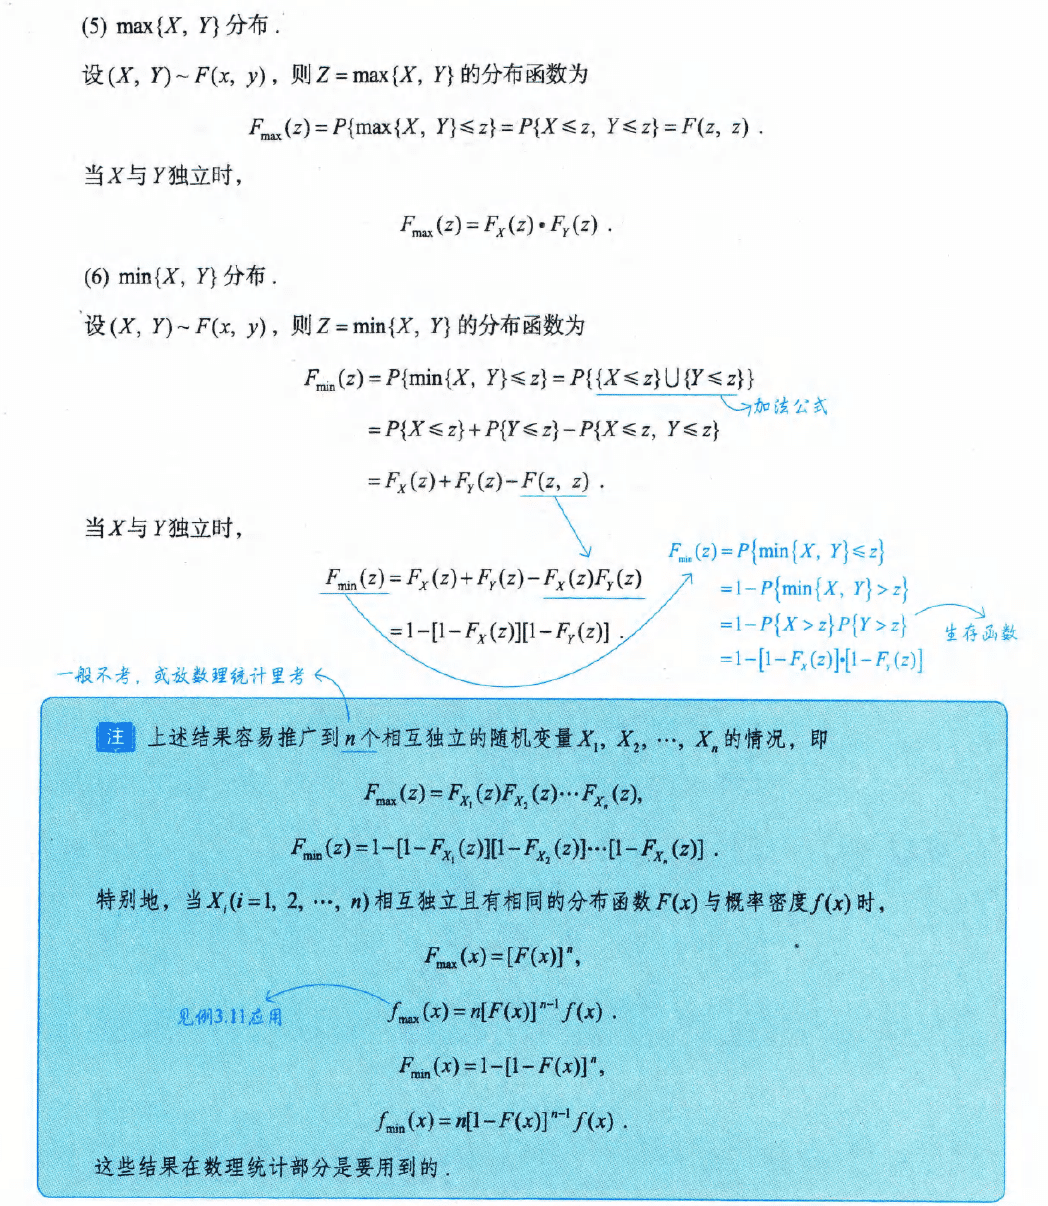 (5) max{X, Y} 分布.
设(X, Y)~F(x, y)，则Z=max{X, Y}的分布函数为
F_max(z)=P{max{X, Y}≤z}=P{X≤z, Y≤z}=F(z, z).
当X与Y独立时，
F_max(z)=F_X(z)·F_Y(z).
(6) min{X, Y} 分布.
设(X, Y)~F(x, y)，则Z=min{X, Y}的分布函数为
F_min(z)=P{min{X, Y}≤z}=P{{X≤z}∪{Y≤z}}
加法公式
=P{X≤z}+P{Y≤z}-P{X≤z, Y≤z}
=F_X(z)+F_Y(z)-F(z, z).
当X与Y独立时，
F_min(z)=F_X(z)+F_Y(z)-F_X(z)F_Y(z)
=1-[1-F_X(z)][1-F_Y(z)].
F_min(z)=P{min{X, Y}≤z}
=1-P{min{X, Y}>z}
=1-P{X>z}P{Y>z}
生存函数
=1-[1-F_X(z)]·[1-F_Y(z)]
一般不考，或放数理统计里考
注 上述结果容易推广到n个相互独立的随机变量X₁, X₂, …, Xₙ的情况，即
F_max(z)=F_X₁(z)F_X₂(z)…F_Xₙ(z),
F_min(z)=1-[1-F_X₁(z)][1-F_X₂(z)]…[1-F_Xₙ(z)].
特别地，当X_i(i=1, 2, …, n)相互独立且有相同的分布函数F(x)与概率密度f(x)时，
F_max(x)=[F(x)]ⁿ,
见例3.11应用
f_max(x)=n[F(x)]ⁿ⁻¹f(x).
F_min(x)=1-[1-F(x)]ⁿ,
f_min(x)=n[1-F(x)]ⁿ⁻¹f(x).
这些结果在数理统计部分是要用到的.